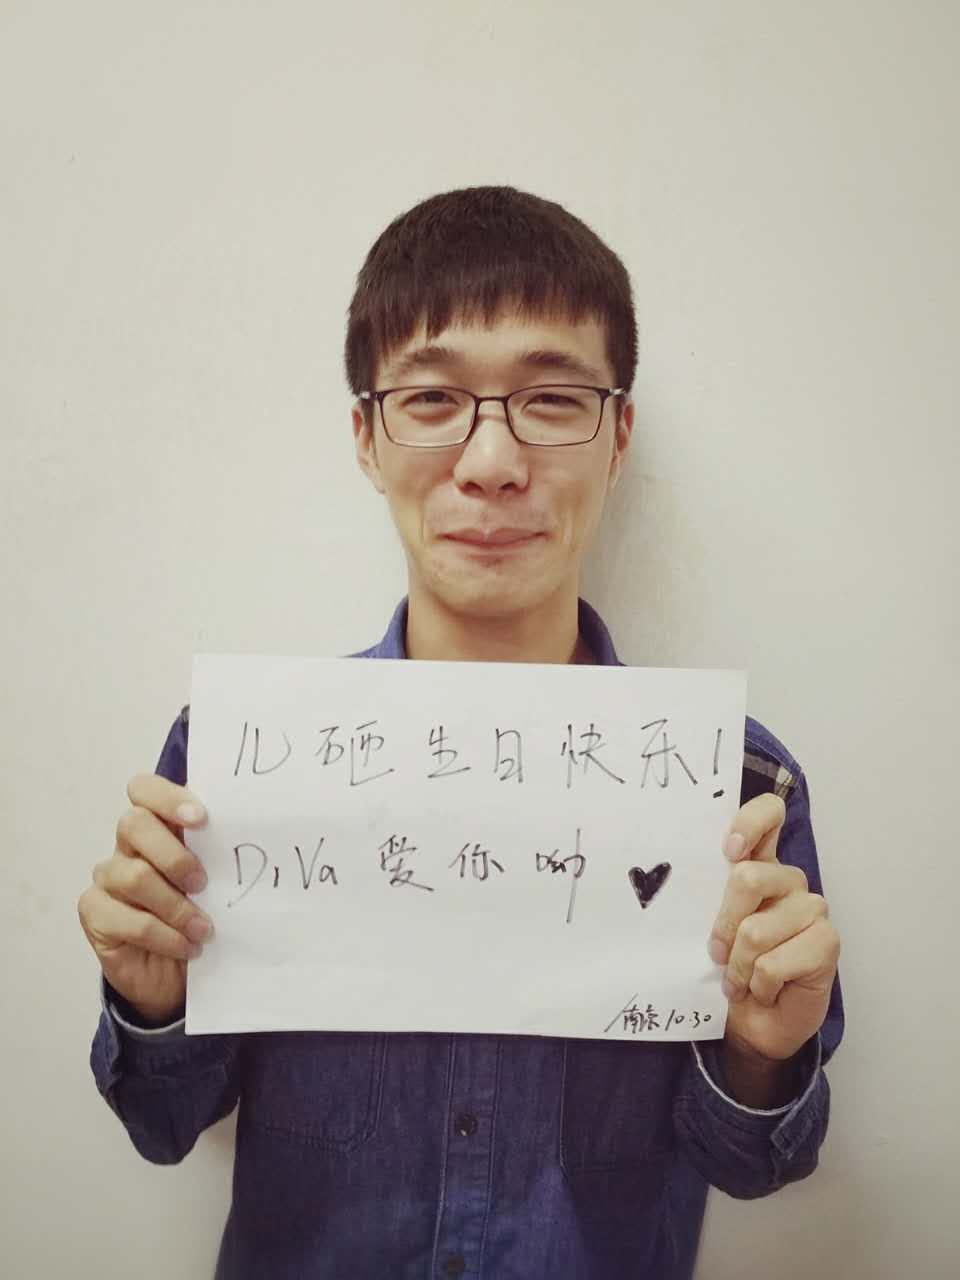 儿砸生日快乐!
DiVa 爱你呦 ♥
南京 10.30